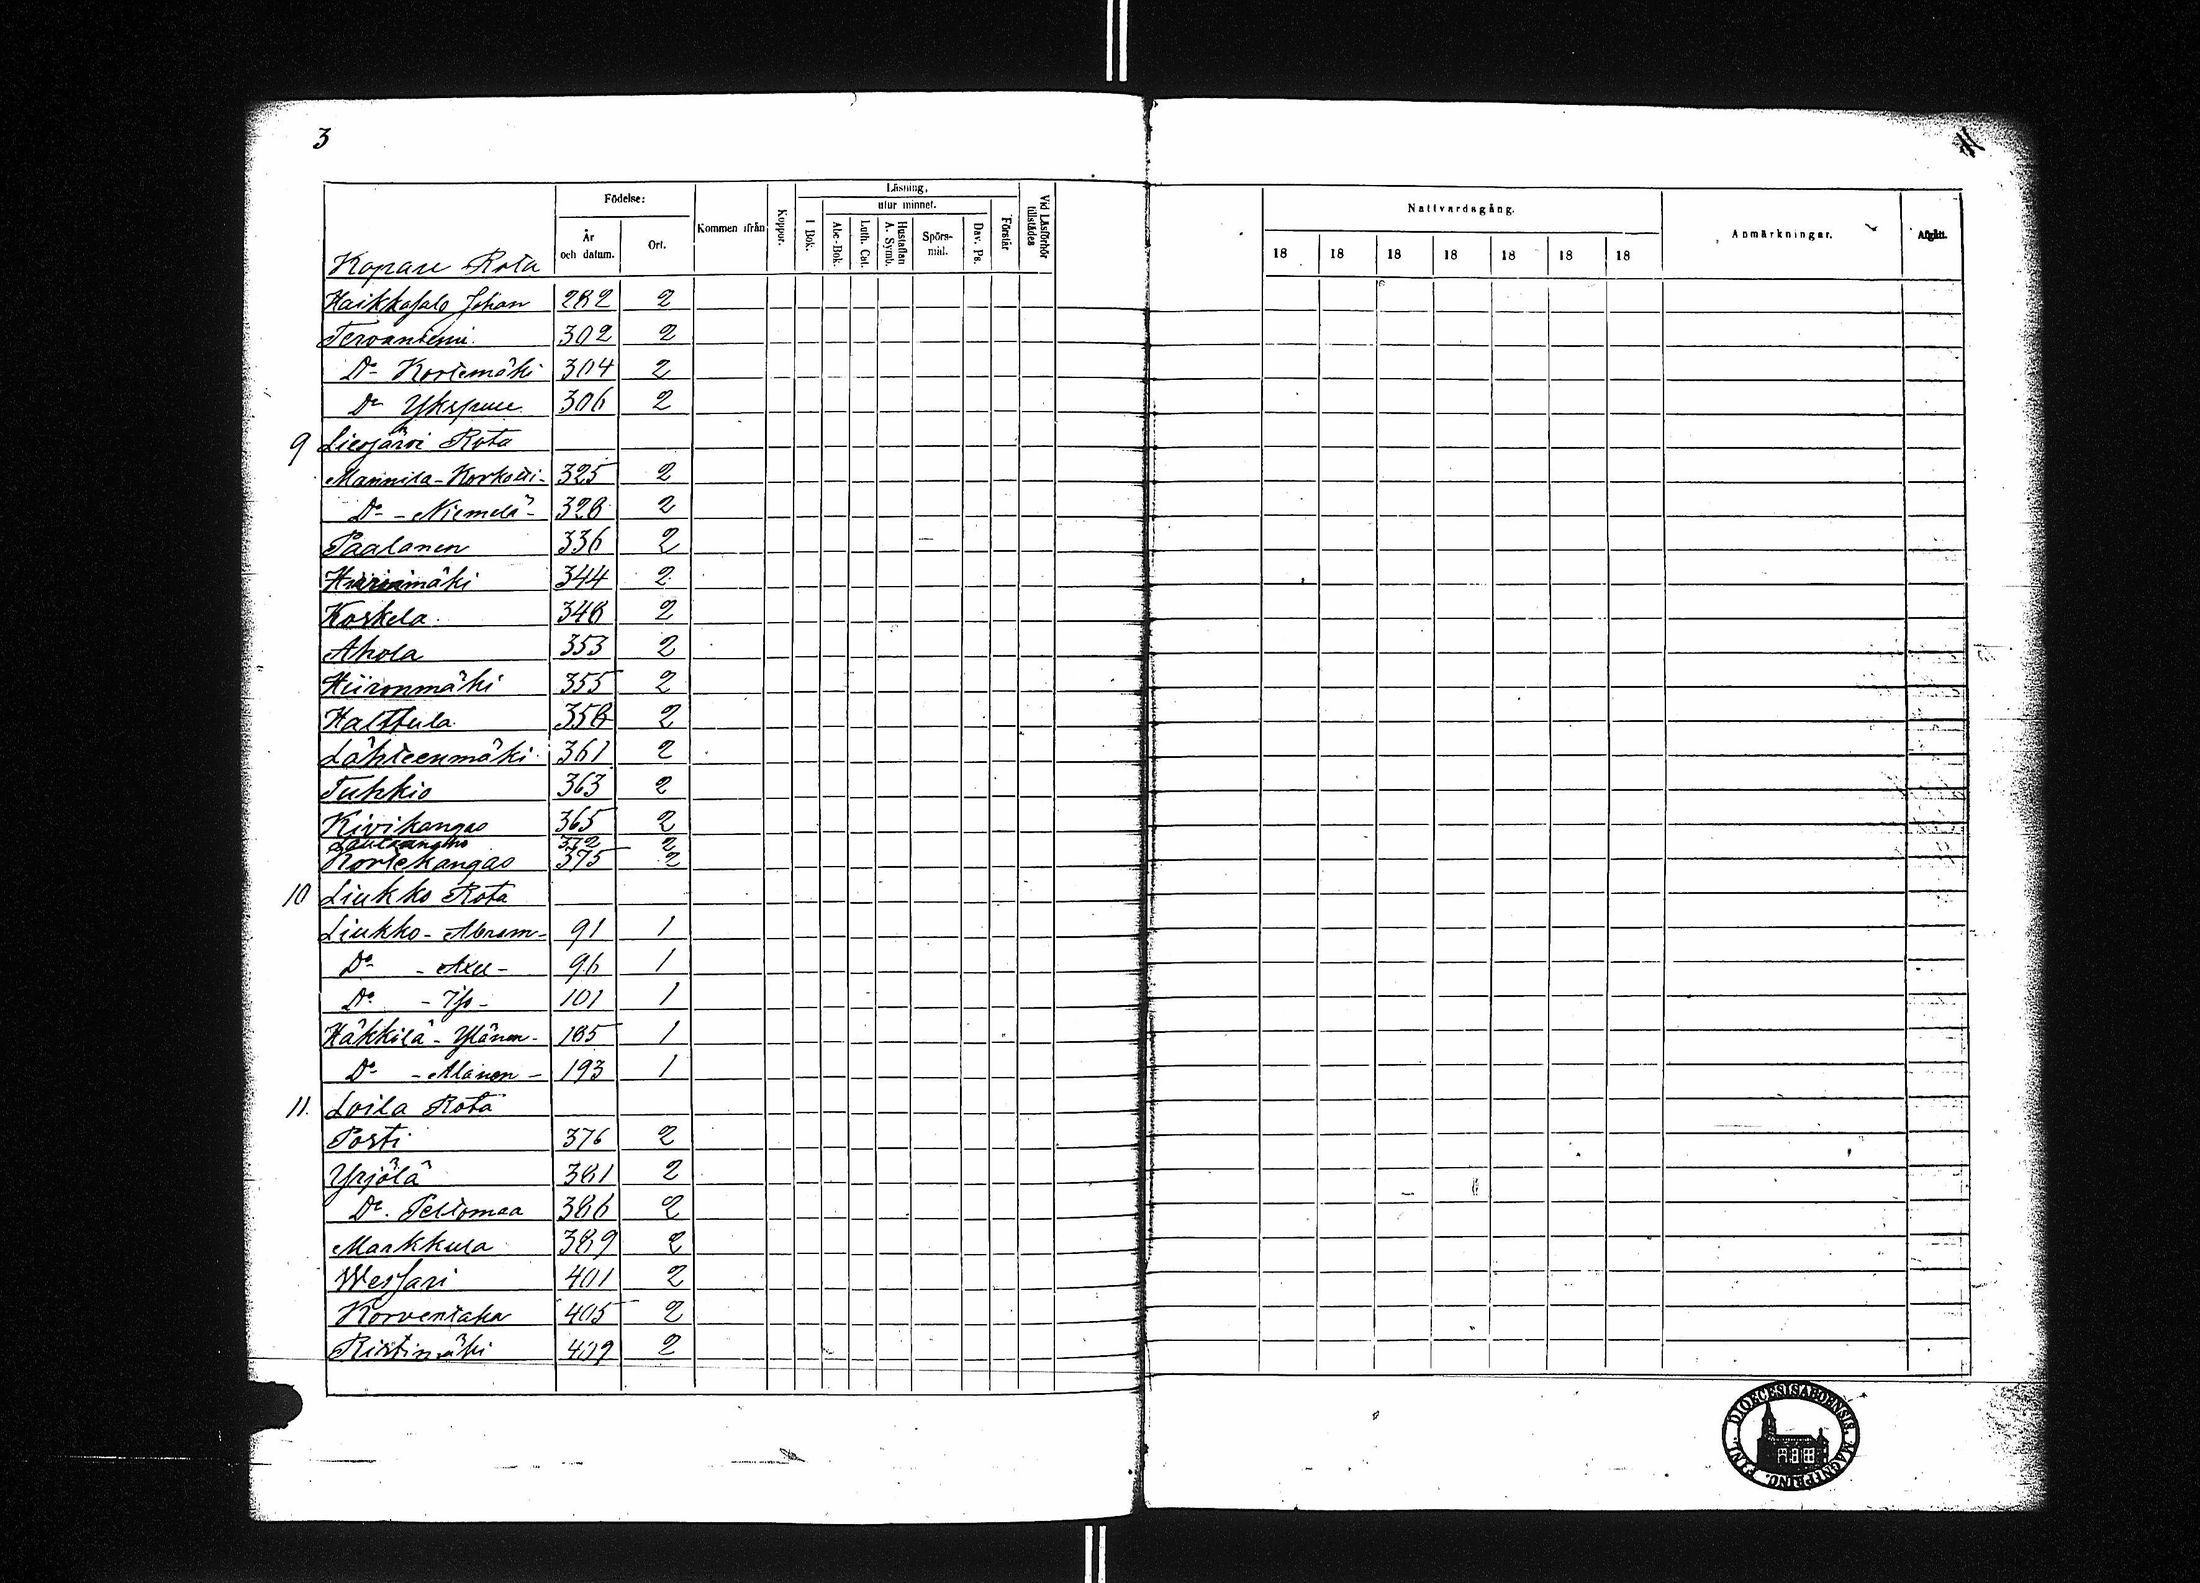 3
Födelse:
År och datum.
Ort.
Kommen ifrån
Koppor.
Läsning,
utur minnet.
I Bok.
Abc-Bok.
Luth. Cat.
Hustaflan A. Symb.
Spörs-mål.
Dav. Ps.
Förstår
Vid Läsförhör tillstädes
Nattvardsgång.
18 18 18 18 18 18 18
Anmärkningar.
Afgått.
Kopare Rota
Haikkasalo Johan 282 2
Tervaniemi 302 2
Do Kortemäki 304 2
Do Ykspuu 306 2
9 Liesjärvi Rota
Mannila-Korkotti- 325 2
Do - Niemelä - 328 2
Paalanen 336 2
344 2
Koskela 348 2
Ahola 353 2
Hiironmäki 355 2
Halttula 358 2
Lähteenmäki 361 2
Tuhkio 363 2
Kivikangas 365 2
372 2
Kortekangas 375 2
10 Liukko Rota
Liukko - Abram - 91 1
Do - Axel - 96 1
Do - Iso - 101 1
Häkkilä - Ylänen - 185 1
Do - Alanen - 193 1
11. Loila Rota
Posti 376 2
Yrjölä 381 2
Do. Peltomaa 386 2
Markkula 389 2
Wessari 401 2
Korventaka 405 2
Ristimäki 409 2
DIOECESIS ABOENSIS. MAGNI PRINC. FINL.